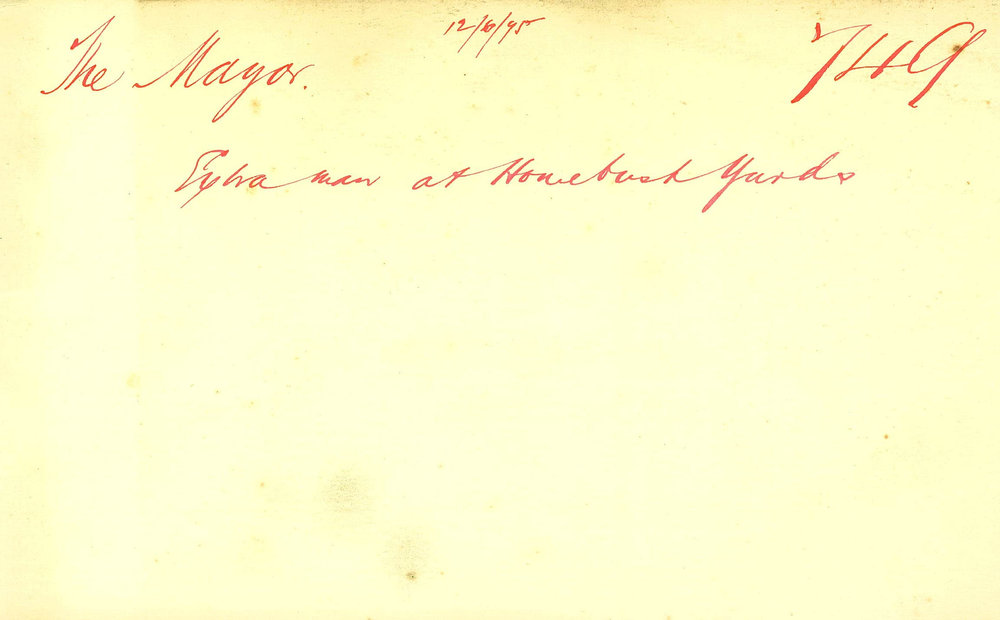 12/6/95
The Mayor. 749
Extra man at Homebush Yards